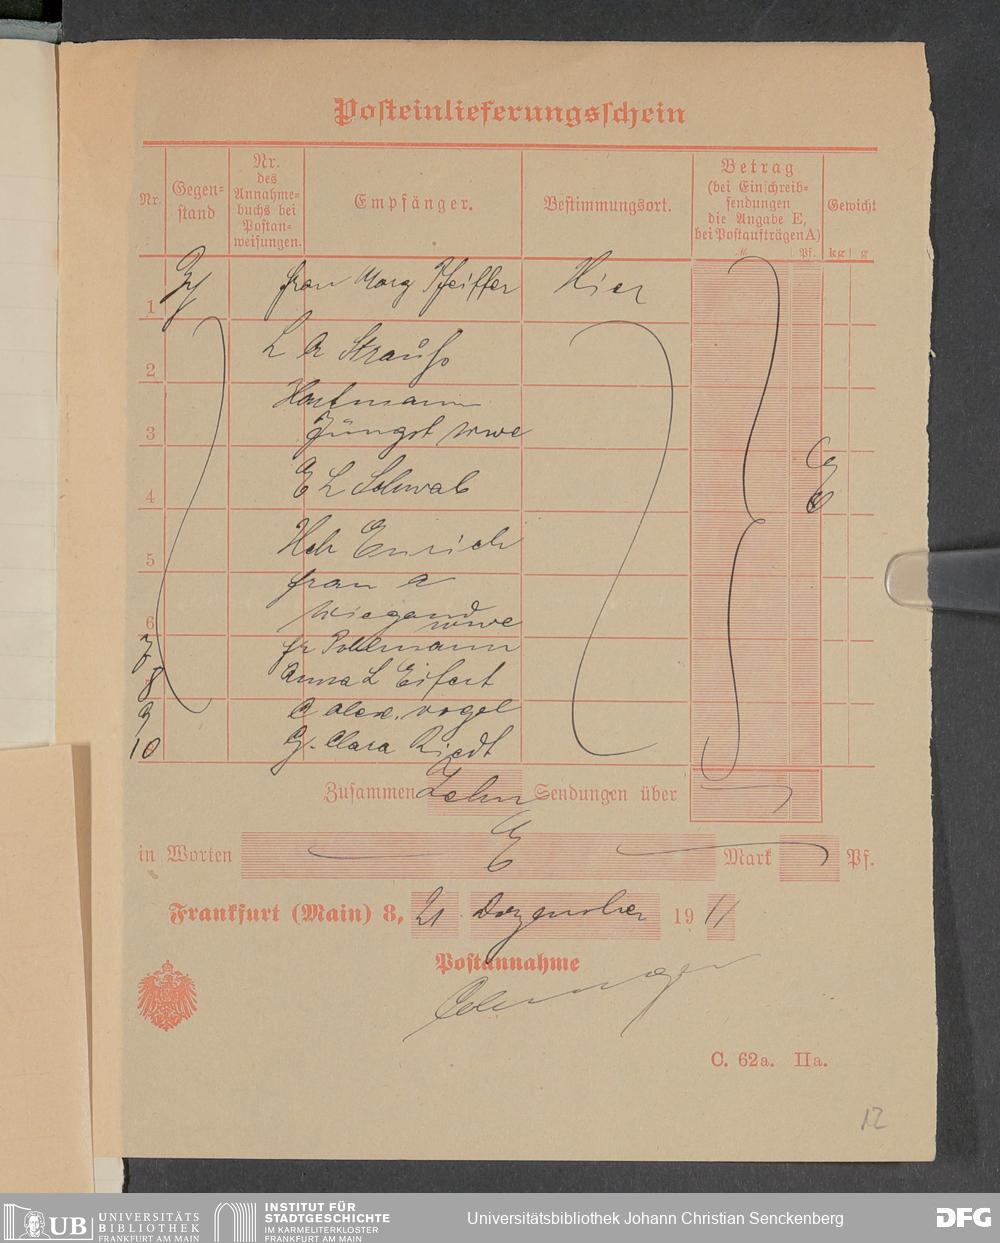 Posteinlieferungsschein
Nr.
Gegen=
stand
Nr.
des
Annahme=
buchs bei
Postan=
weisungen.
Empfänger.
Bestimmungsort.
Betrag
(bei Einschreib=
sendungen
die Angabe E,
bei Postaufträgen A)
M
Pf.
Gewicht
kg
g
1 Frau Marg Pfeiffer Hier
2 L A Strauß
Hartmann
3 Jüngst wwe
4 E L Schwab
5 Hch Emrich
Frau A
6 Wiegand
wwe
7 Fr Pollmann
8 Anna L Eifert
9 C Alex. Vogel
10 G. Clara Riedt
Zusammen Zehn Sendungen über
in Worten E Mark Pf.
Frankfurt (Main) 8, 21 Dezember 19 11
Postannahme
C. 62a. IIa.
12
UB UNIVERSITÄTS
BIBLIOTHEK
FRANKFURT AM MAIN
INSTITUT FÜR
STADTGESCHICHTE
IM KARMELITERKLOSTER
FRANKFURT AM MAIN
Universitätsbibliothek Johann Christian Senckenberg
DFG